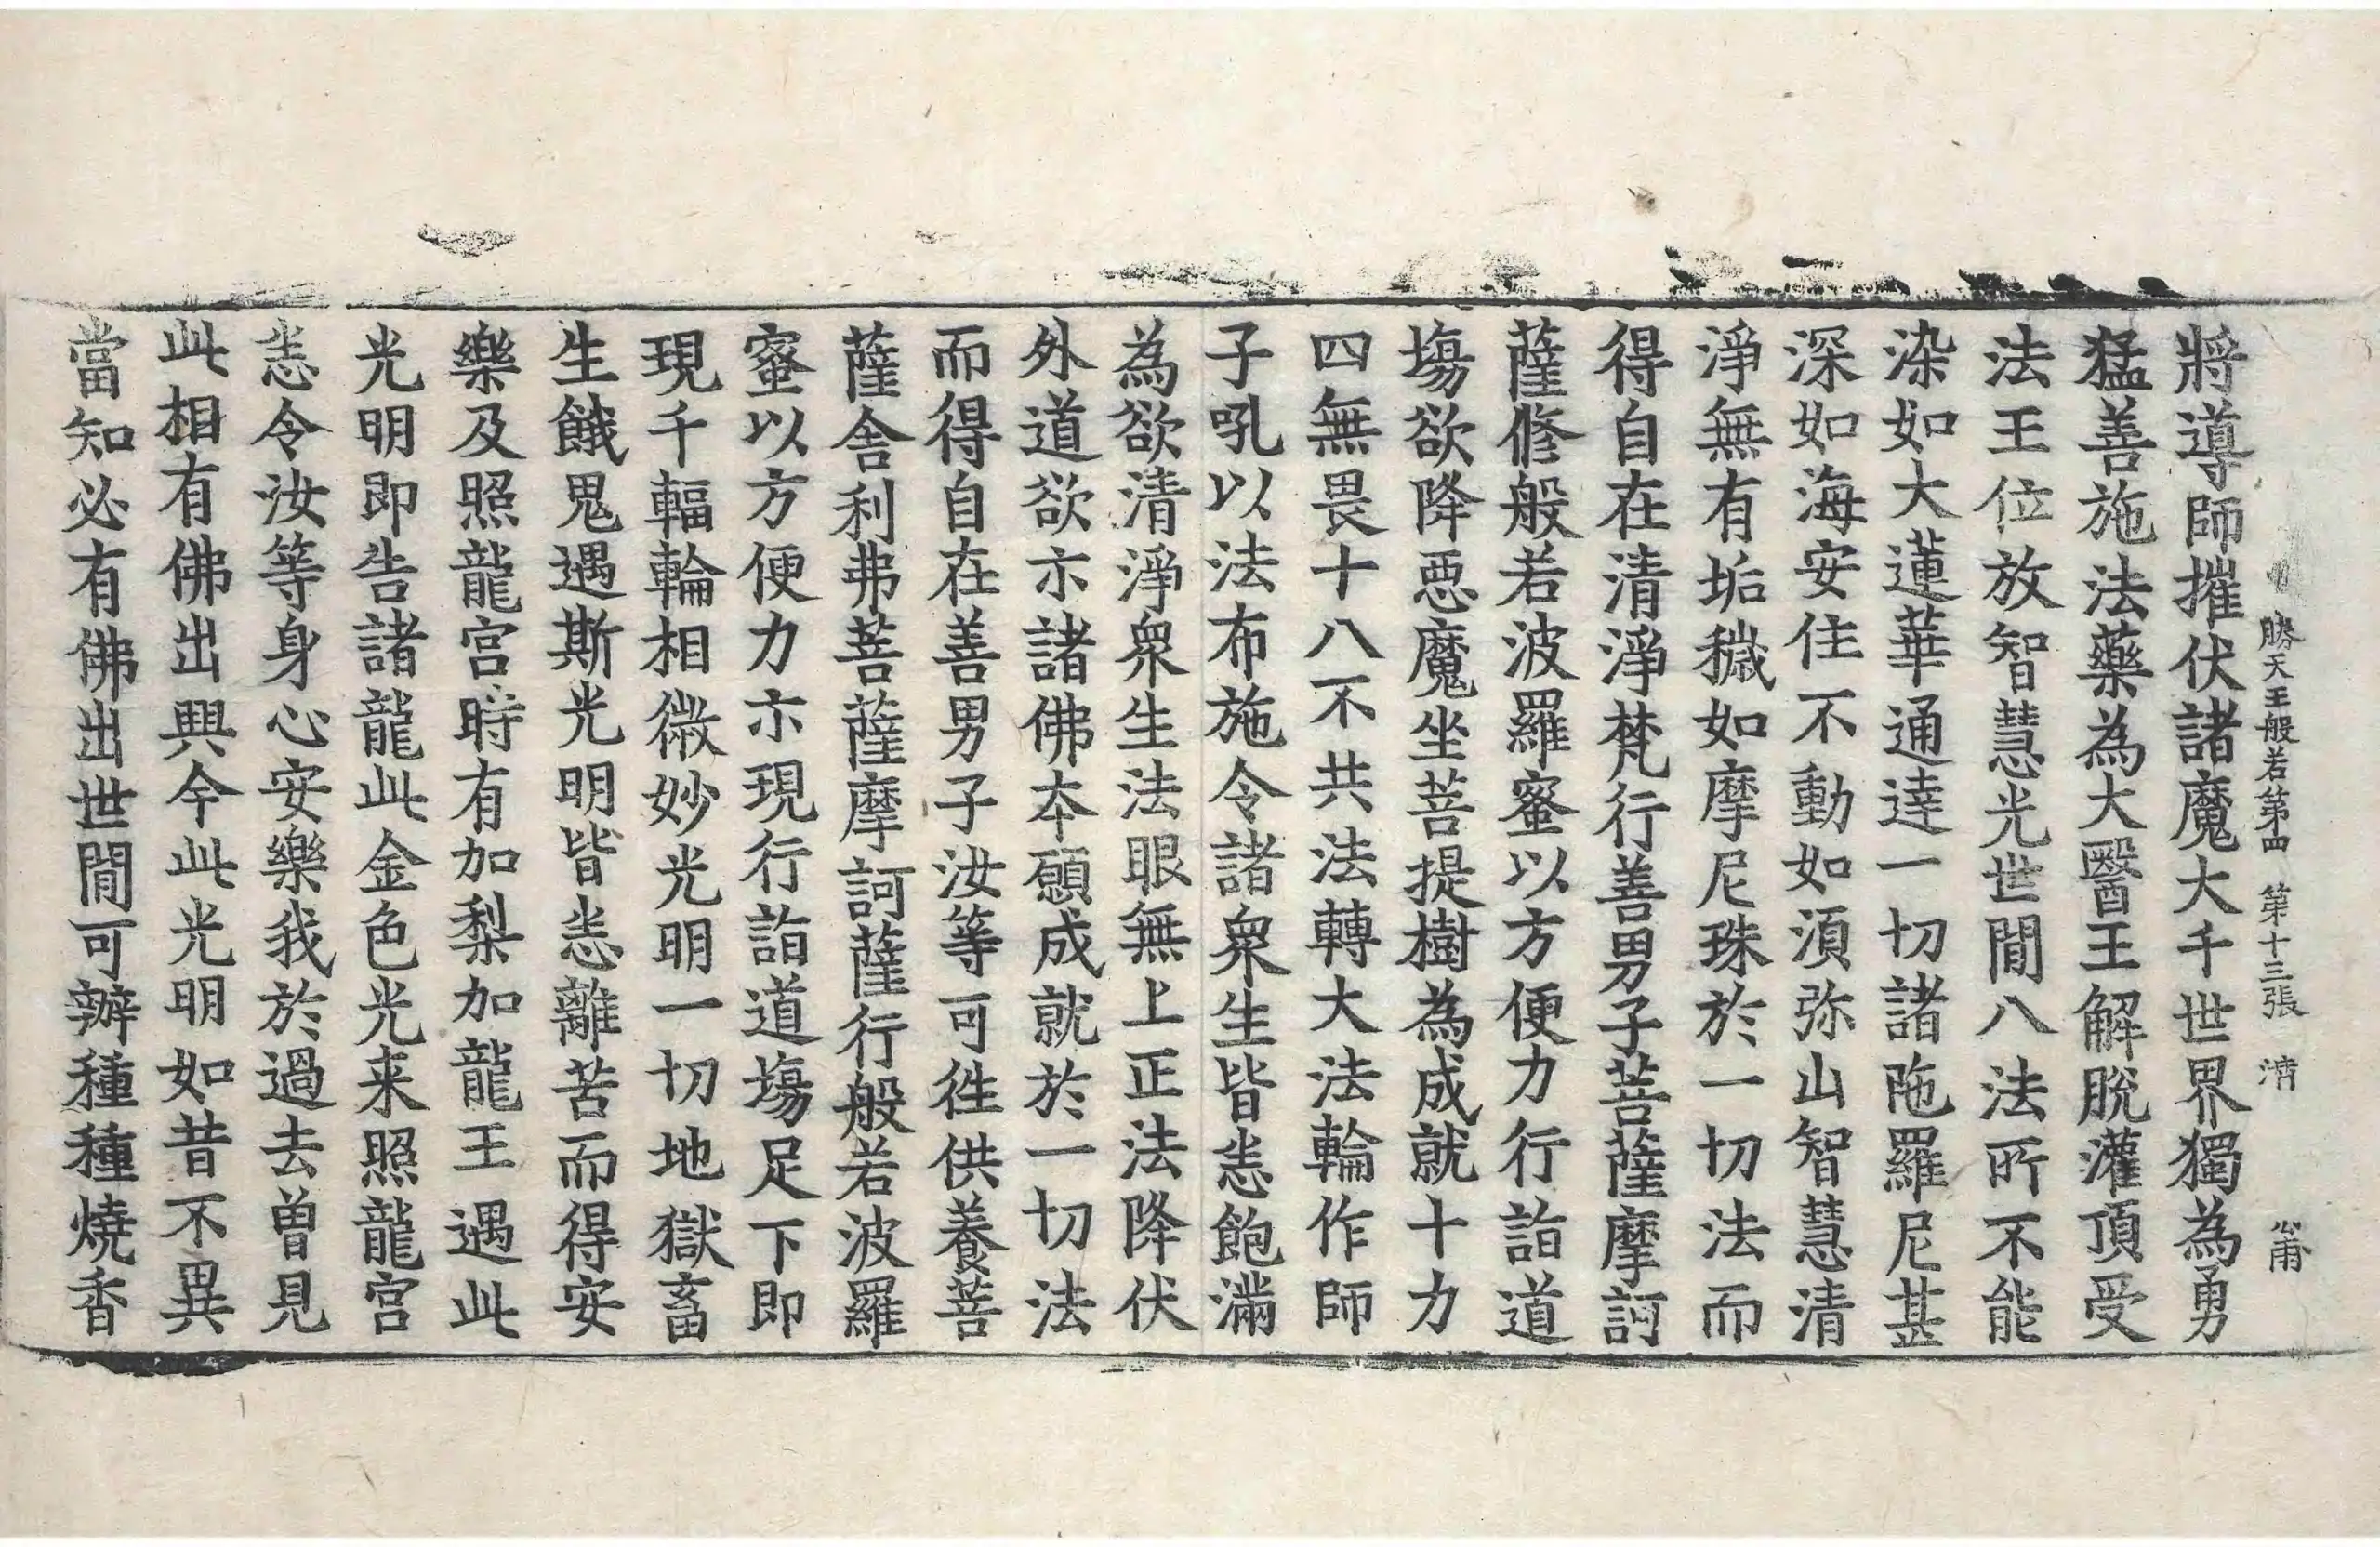 勝天王般若第四 第十三張 清
將導師摧伏諸魔大千世界獨為勇
猛善施法藥為大醫王解脫灌頂受
法王位放智慧光世閒八法所不能
染如大蓮華通達一切諸陁羅尼甚
深如海安住不動如湏弥山智慧清
淨無有垢穢如摩尼珠於一切法而
得自在清淨梵行善男子菩薩摩訶
薩修般若波羅蜜以方便力行詣道
場欲降惡魔坐菩提樹為成就十力
四無畏十八不共法轉大法輪作師
子吼以法布施令諸衆生皆悉飽滿
為欲清淨衆生法眼無上正法降伏
外道欲示諸佛本願成就於一切法
而得自在善男子汝等可徃供養菩
薩舍利弗菩薩摩訶薩行般若波羅
蜜以方便力示現行詣道場足下即
現千輻輪相微妙光明一切地獄畜
生餓鬼遇斯光明皆悉離苦而得安
樂及照龍宮時有加梨加龍王遇此
光明即告諸龍此金色光来照龍宮
悉令汝等身心安樂我於過去曾見
此相有佛出興今此光明如昔不異
當知必有佛出世閒可辦種種燒香